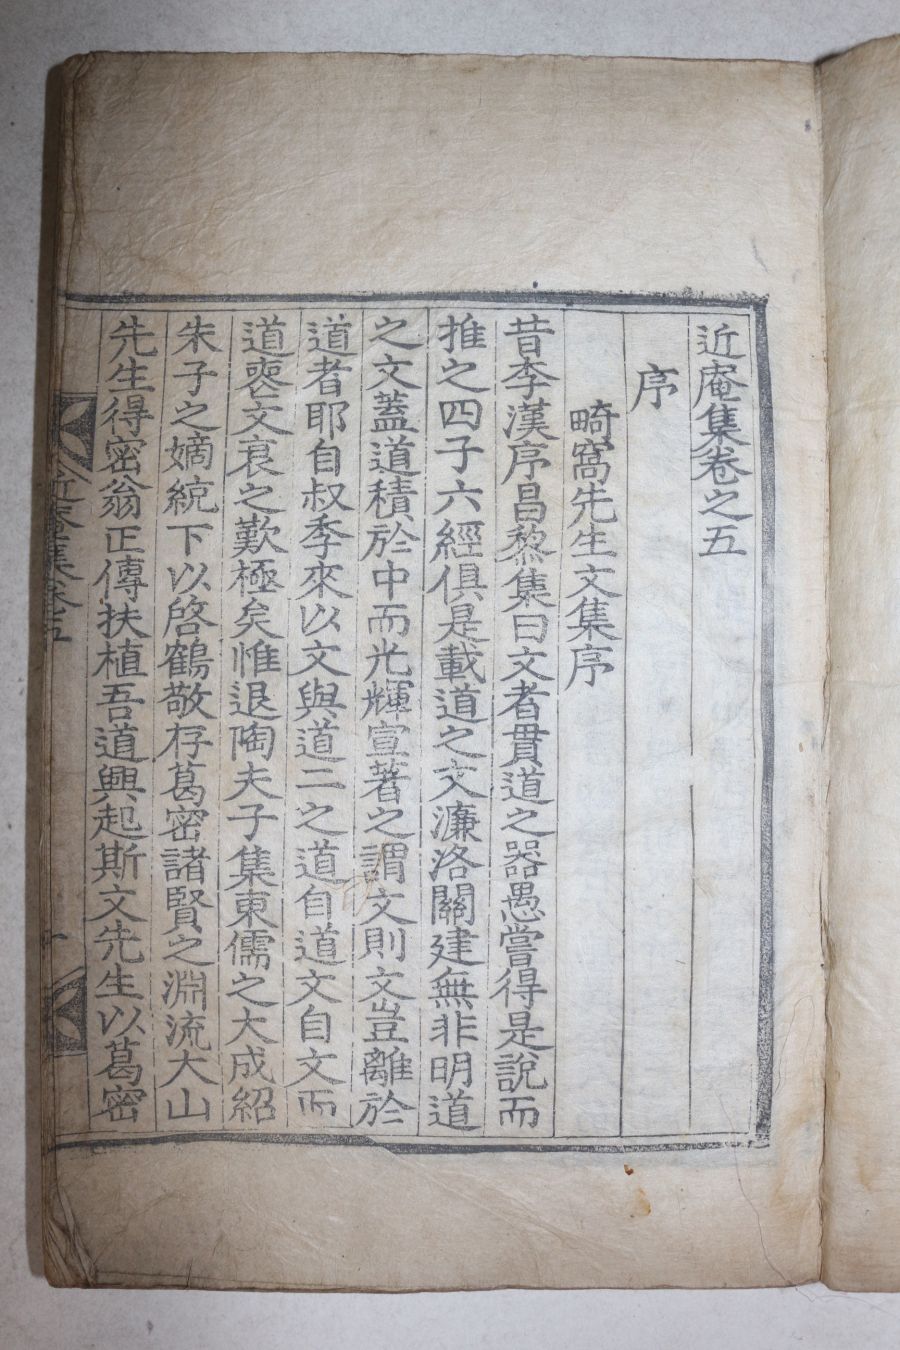 近庵集卷之五
序
畸窩先生文集序
昔李漢序昌黎集曰文者貫道之器愚嘗得是說而
推之四子六經俱是載道之文濂洛關建無非明道
之文蓋道積於中而光輝宣著之謂文則文豈離於
道者耶自叔季來以文與道二之道自道文自文而
道喪文衰之歎極矣惟退陶夫子集東儒之大成紹
朱子之嫡統下以啓鶴敬存葛密諸賢之淵流大山
先生得密翁正傳扶植吾道興起斯文先生以葛密
近庵集卷之五
一